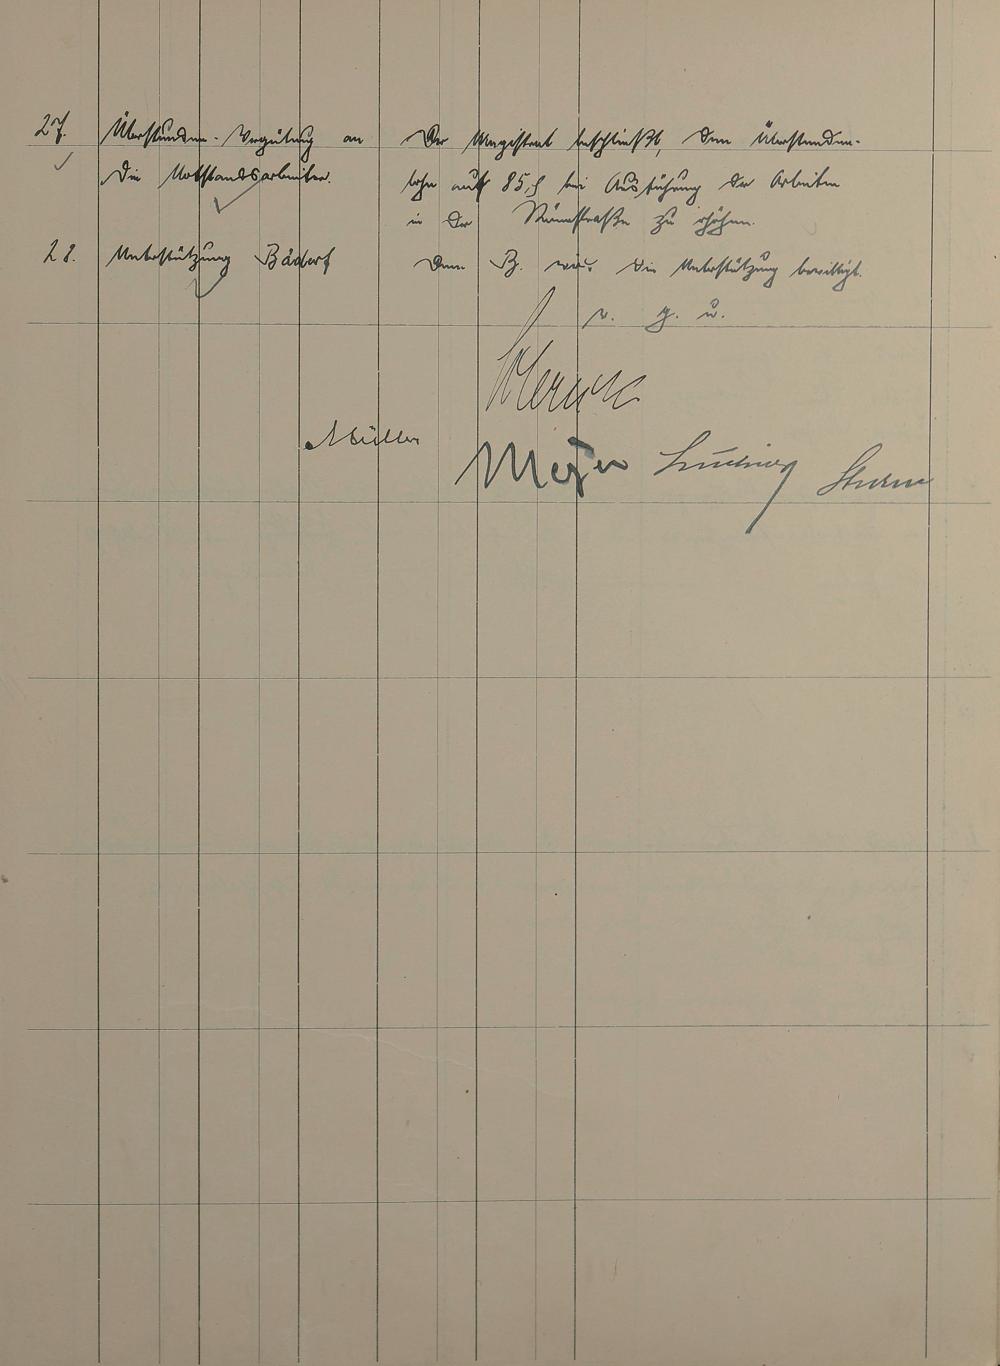 27. Überstunden-Vergütung an
die Notstandsarbeiter.
Der Magistrat beschließt, den Überstunden-
lohn auf 85 ₰ bei Ausführung der Arbeiten
in der zu erhöhen.
28. Unterstützung Bädorf
Dem B. wird die Unterstützung bewilligt.
v. g. u.
Müller
Meyer
Sturm